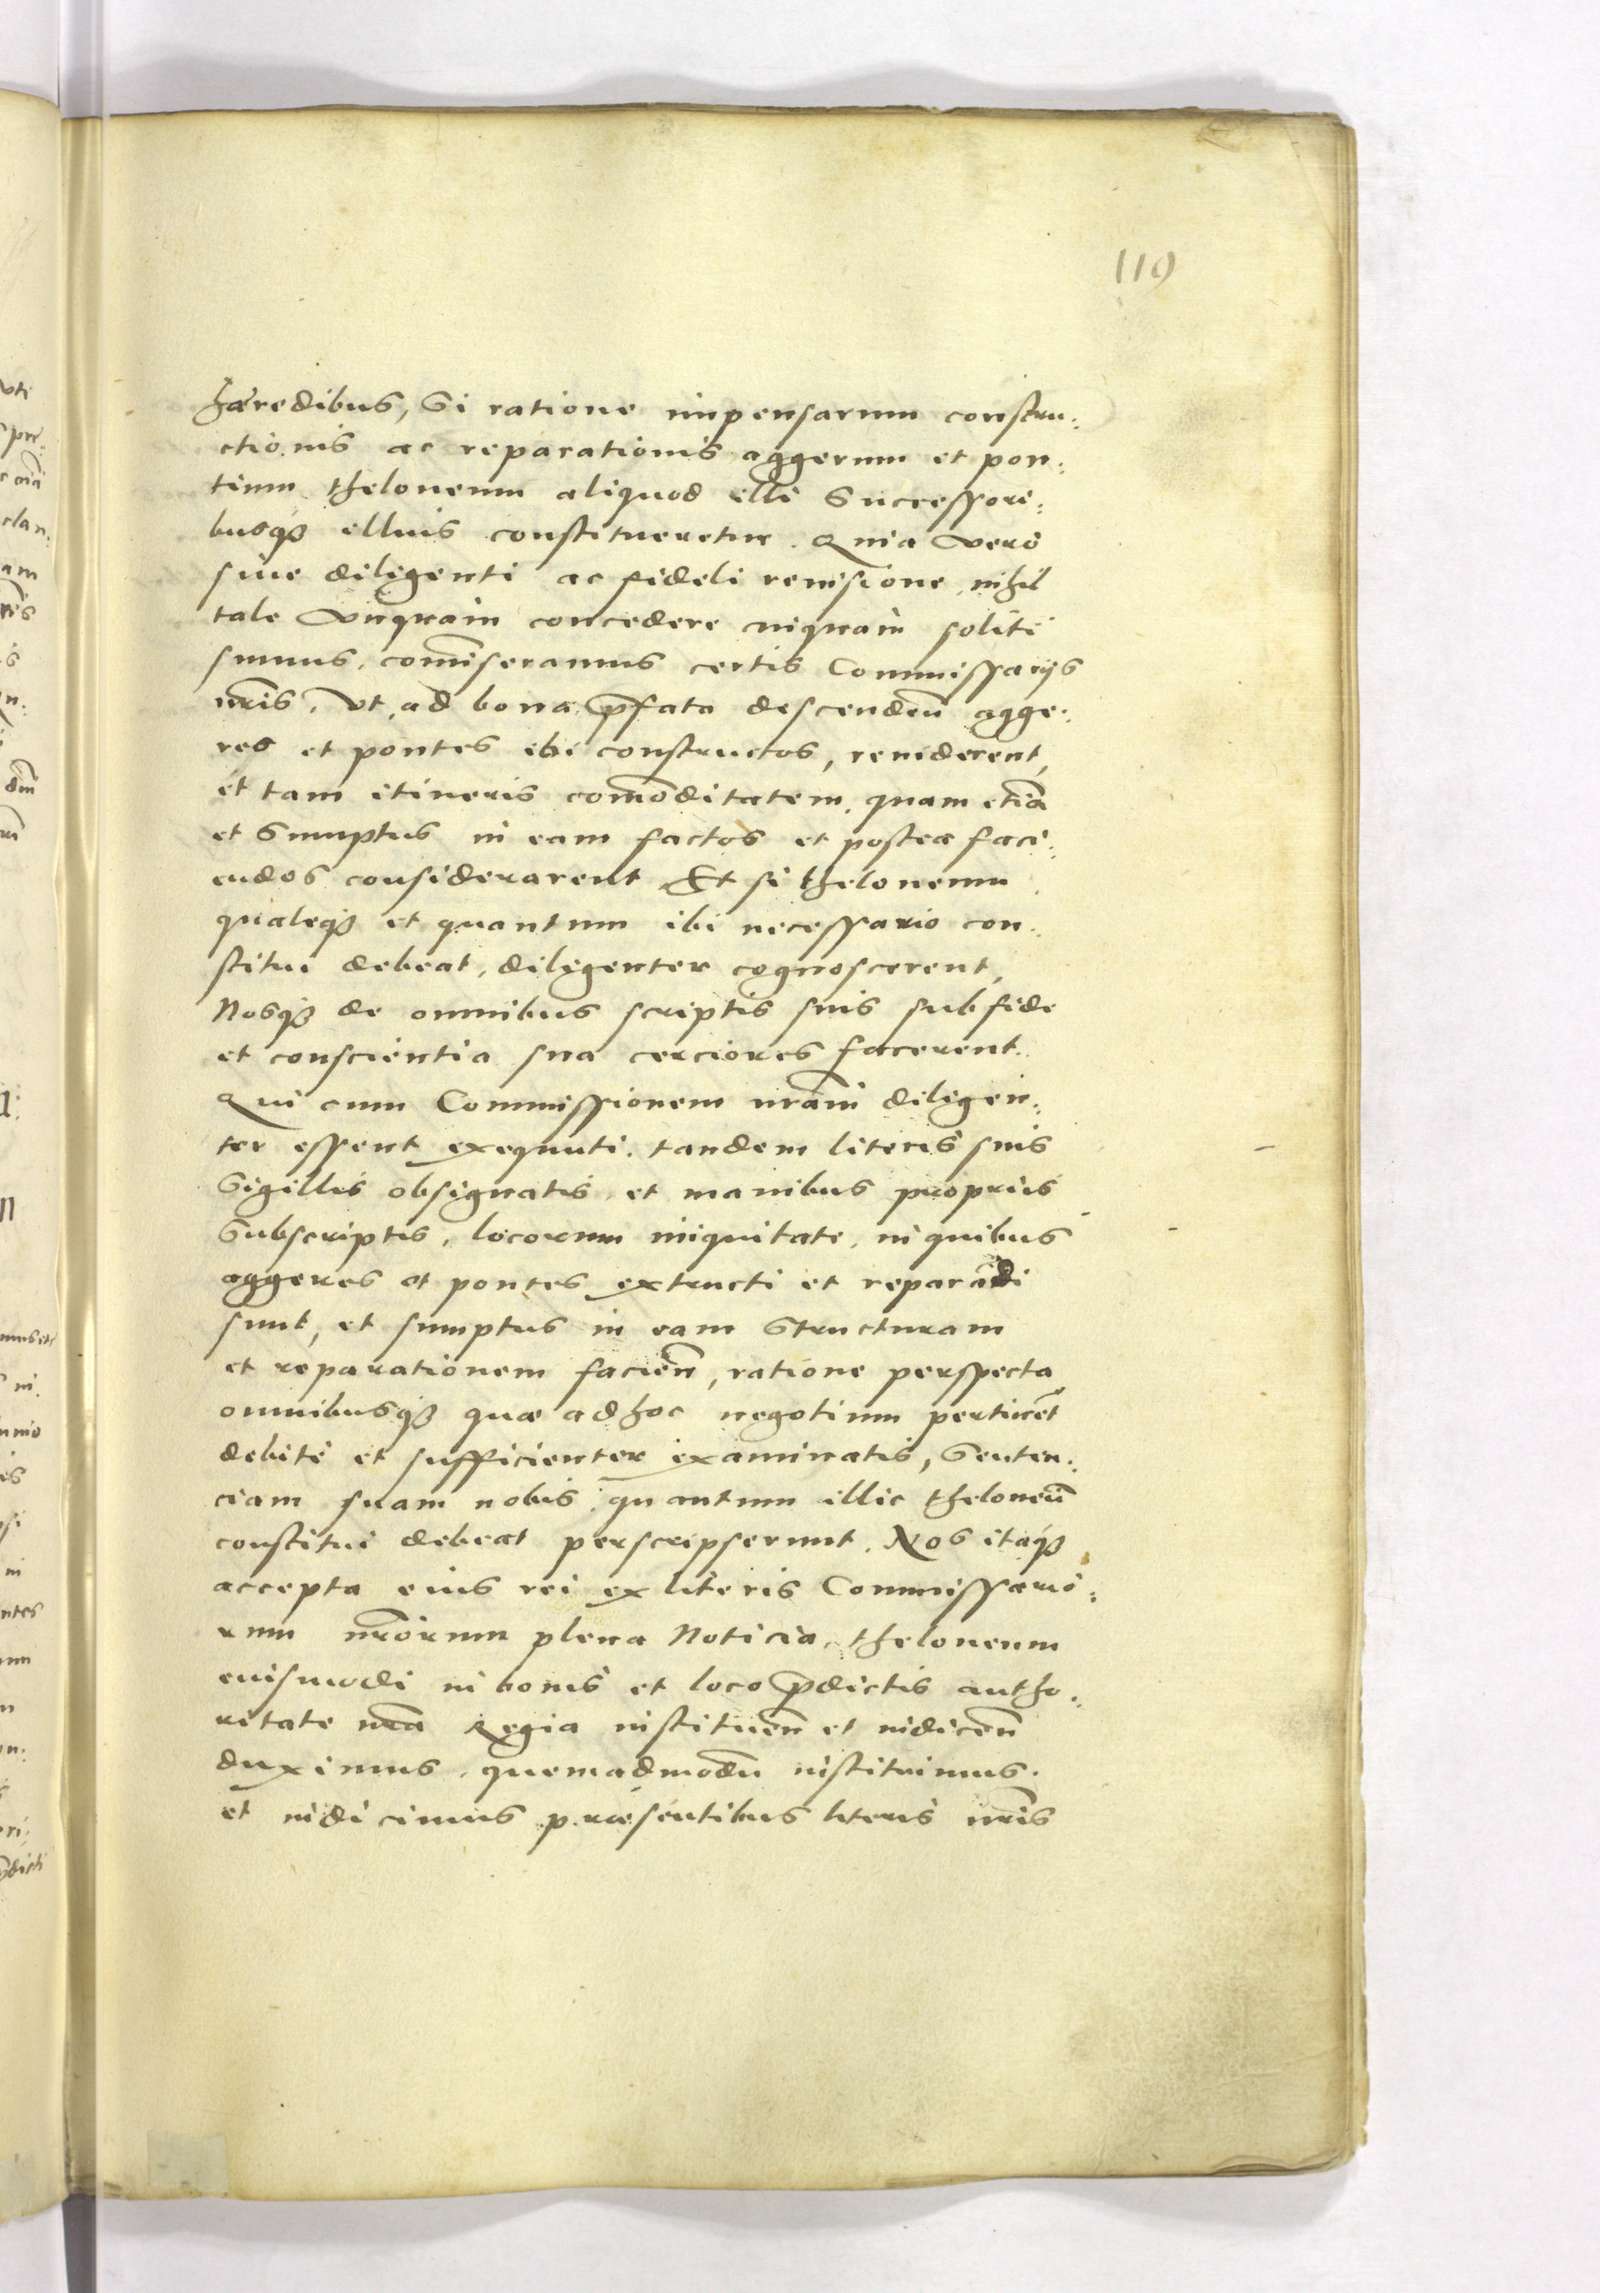 119
hæredibus, Si ratione impensarum constru:
ctionis ac reparationis aggerum et pon:
tium theloneum aliquod illi Successori:
busq3 illius constitueretur. Quia Vero
sine diligenti ac fideli reuisione, nihil
tale Vnquam concedere cuiquam soliti
sumus. comiseramus certis Commissarijs
nris. Vt ad bona pfata descenden agge:
res et pontes ibi constructos, reuiderent,
et tam itineris comoditatem, quam etia
et Sumptus in eam factos et postea faci:
endos considerarent. Et si theloneum
qualeq3 et quantum ibi necessario con:
stitui debeat, diligenter cognoscerent,
Nosq3 de omnibus scriptis suis sub fide
et conscientia sua cerciores facerent.
Qui cum Commissionem nram diligen:
ter essent exequuti. tandem literis suis
Sigillis obsignatis et manibus proprijs
Subscriptis, locorum iniquitate, in quibus
aggeres et pontes extructi et reparadi
sunt, et sumptus in eam Structuram
et reparationem facien, ratione perspecta
omnibusq3 quæ ad hoc negotium pertinet
debite et sufficienter examinatis, Senten:
ciam suam nobis, quantum illic theloneu
constitui debeat perscripserunt. Nos itaq3
accepta eius rei ex literis Commissario:
rum nrorum plena Noticia, theloneum
euismodi in bonis et loco pdictis autho:
ritate nra Regia instituen et indicen
duximus, quemadmodu instituimus.
et indicimus præsentibus literis nris